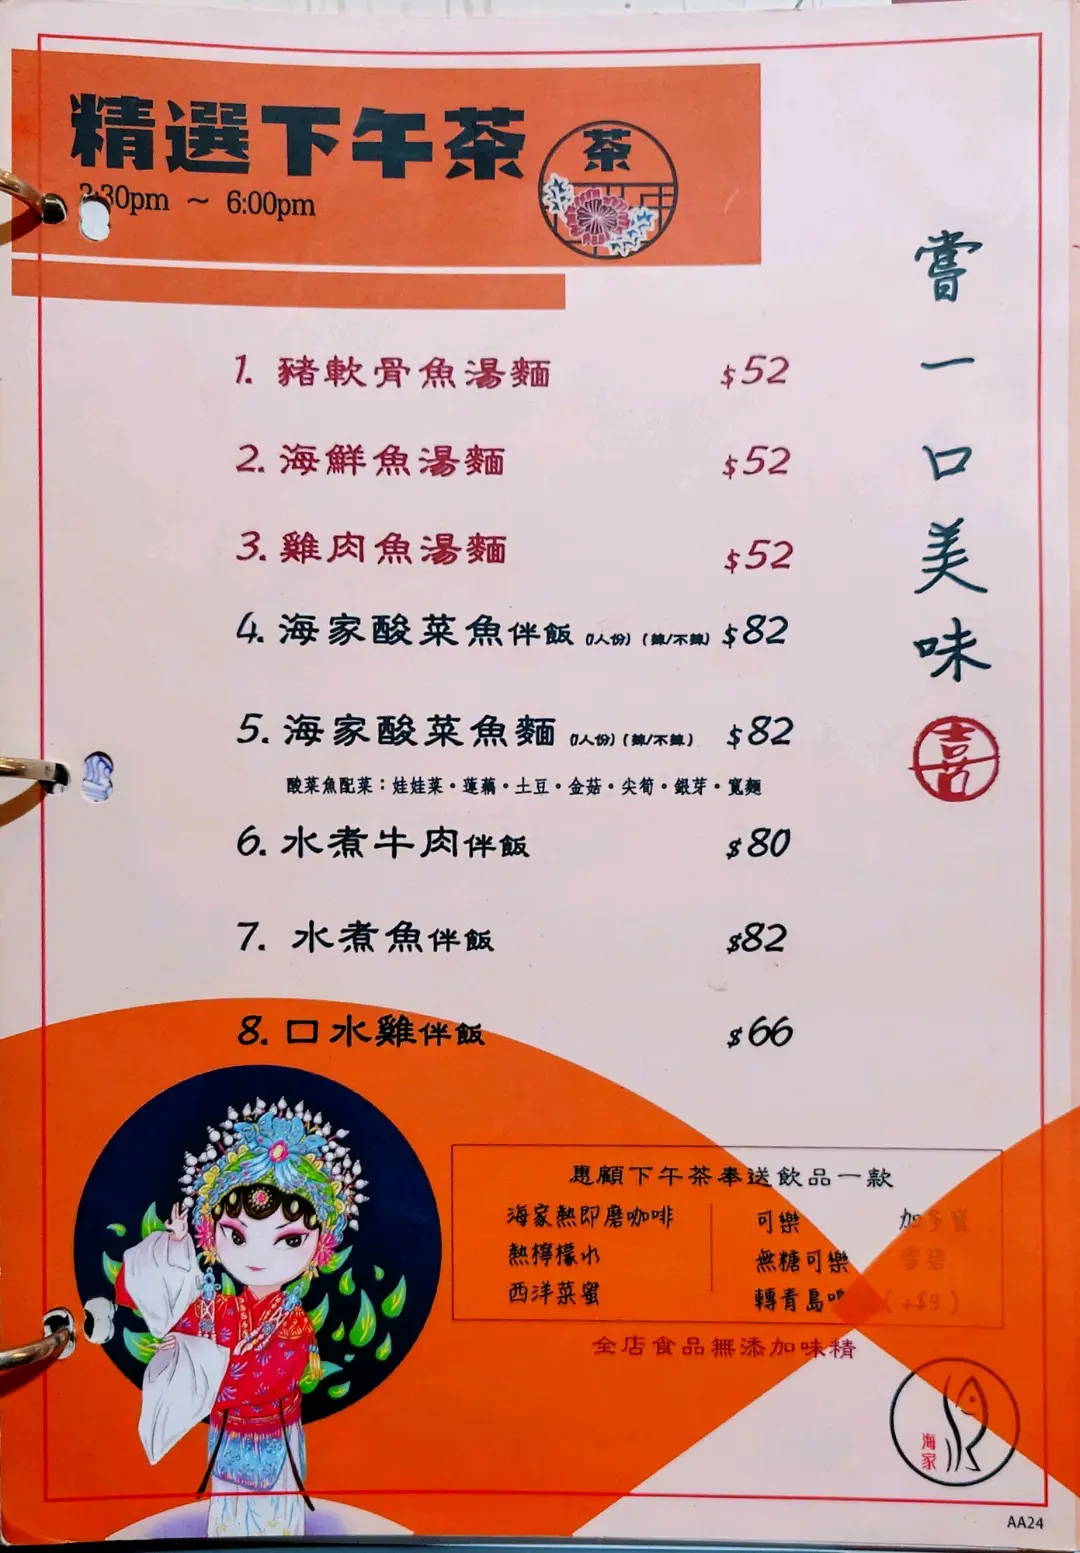 精選下午茶
茶
2:30pm ～ 6:00pm
嘗一口美味
喜
1. 豬軟骨魚湯麵 $52
2. 海鮮魚湯麵 $52
3. 雞肉魚湯麵 $52
4. 海家酸菜魚伴飯 (1人份) (辣/不辣) $82
5. 海家酸菜魚麵 (1人份) (辣/不辣) $82
酸菜魚配菜：娃娃菜·蓮藕·土豆·金菇·尖筍·銀芽·寬麵
6. 水煮牛肉伴飯 $80
7. 水煮魚伴飯 $82
8. 口水雞伴飯 $66
惠顧下午茶奉送飲品一款
海家熱即磨咖啡 可樂 加多寶
熱檸檬水 無糖可樂 雪碧
西洋菜蜜 轉青島啤 (+$9)
全店食品無添加味精
海家
AA24